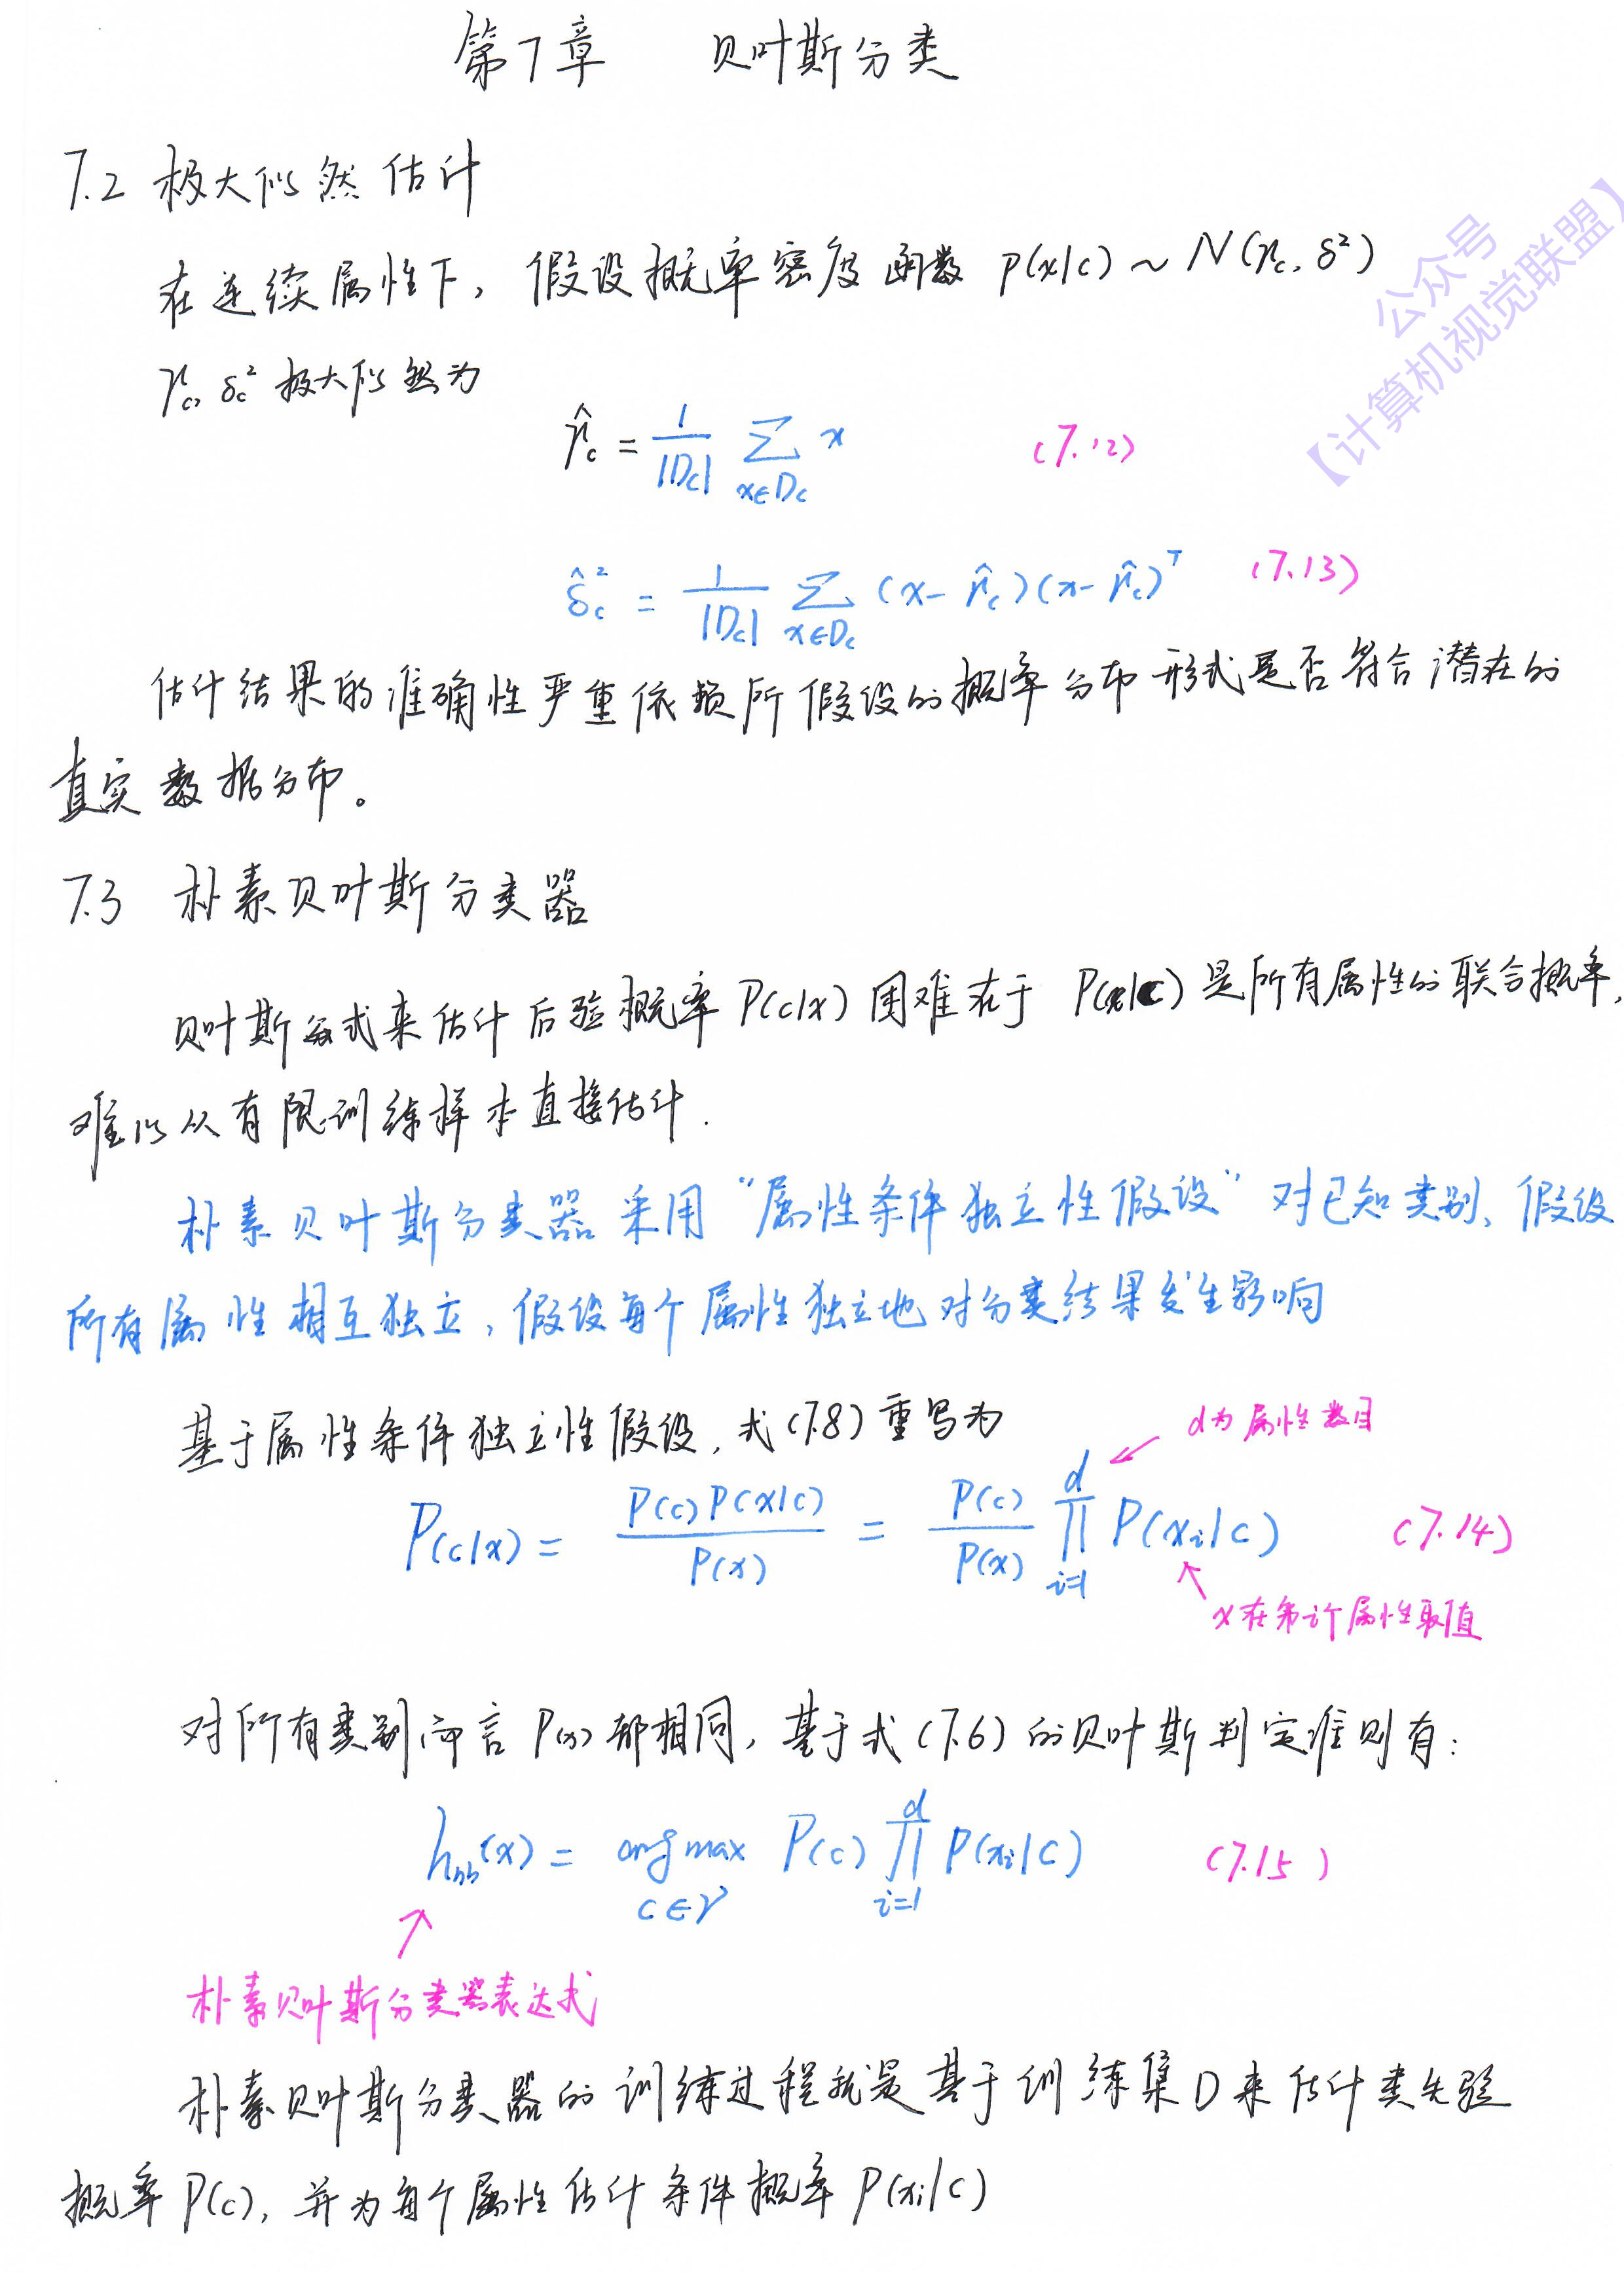 第7章 贝叶斯分类
7.2 极大似然估计
在连续属性下，假设概率密度函数 p(x|c) ~ N(μc, δ²)
μc, δc² 极大似然为
μ̂c = 1/|Dc| ∑x∈Dc x (7.12)
δ̂c² = 1/|Dc| ∑x∈Dc (x- μ̂c)(x- μ̂c)ᵀ (7.13)
估计结果的准确性严重依赖所假设的概率分布形式是否符合潜在的
真实数据分布。
7.3 朴素贝叶斯分类器
贝叶斯公式来估计后验概率 P(c|x) 困难在于 P(x|c) 是所有属性的联合概率,
难以从有限训练样本直接估计.
朴素贝叶斯分类器采用“属性条件独立性假设”对已知类别、假设
所有属性相互独立，假设每个属性独立地对分类结果发生影响
基于属性条件独立性假设, 式(7.8)重写为
d为属性数目
P(c|x) = P(c)P(x|c)/P(x) = P(c)/P(x) ∏i=1 d P(xi|c) (7.14)
x在第i个属性取值
对所有类别而言 P(x) 都相同, 基于式(7.6)的贝叶斯判定准则有:
hnb(x) = arg max c∈𝒴 P(c) ∏i=1 d P(xi|c) (7.15)
朴素贝叶斯分类器表达式
朴素贝叶斯分类器的训练过程就是基于训练集D来估计类先验
概率 P(c), 并为每个属性估计条件概率 P(xi|c)
公众号
【计算机视觉联盟】